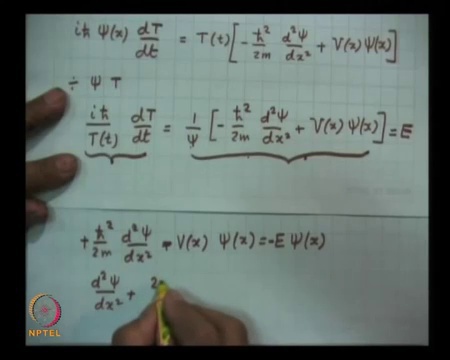 iħ Ψ(x) dT/dt = T(t)[-ħ²/2m d²Ψ/dx² + V(x)Ψ(x)]
÷ Ψ T
iħ/T(t) dT/dt = 1/Ψ [-ħ²/2m d²Ψ/dx² + V(x)Ψ(x)] = E
+ħ²/2m d²Ψ/dx² - V(x) Ψ(x) = -E Ψ(x)
d²Ψ/dx² + 2
NPTEL